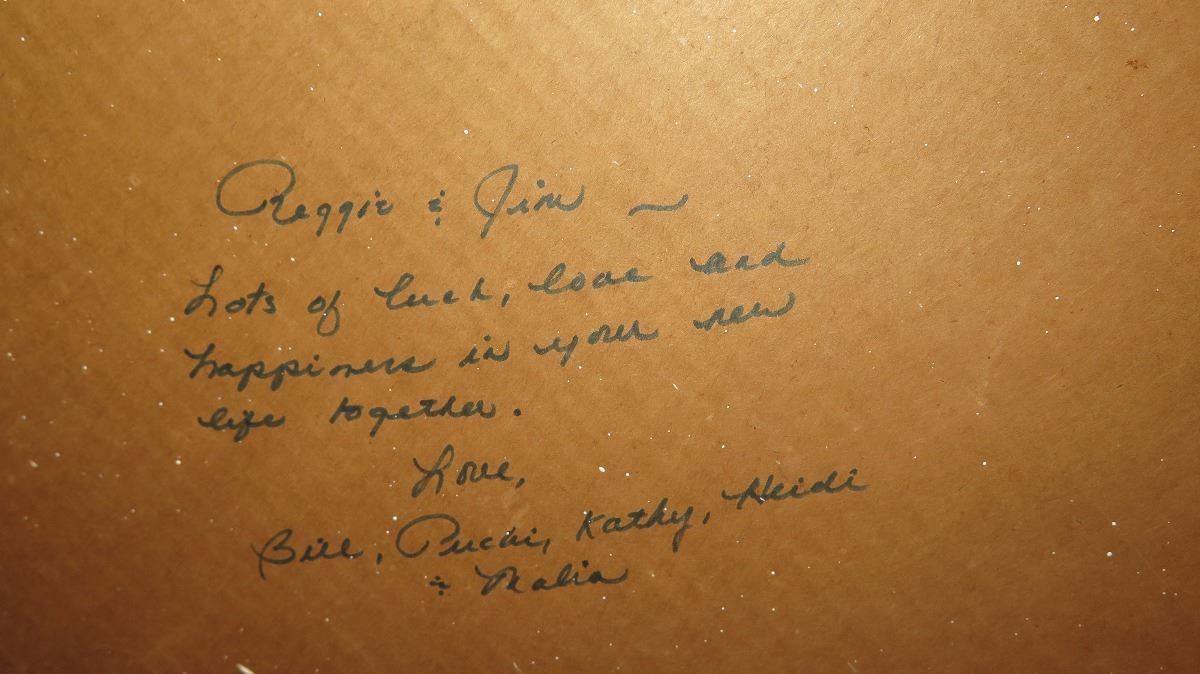 Reggie & Jim ~
Lots of luck, love and
happiness in your new
life together.
Love,
Bill, Puchi, Kathy, Heidi
& Malia